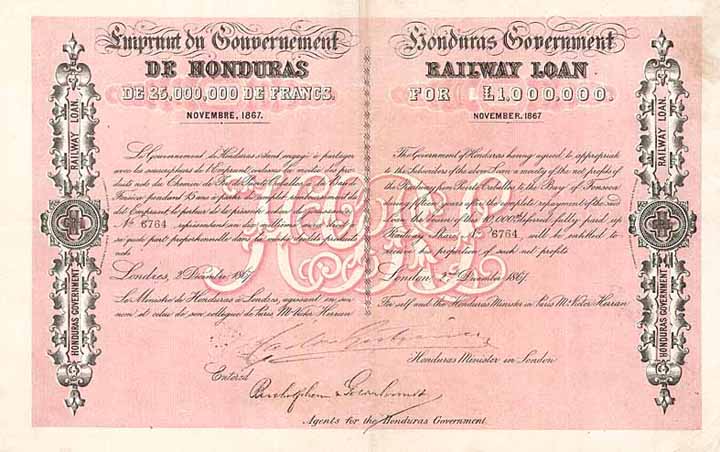 Emprunt du Gouvernement
DE HONDURAS
DE 25,000,000 DE FRANCS.
NOVEMBRE, 1867.
Le Gouvernement de Honduras s'étant engagé à partager
avec les souscripteurs de l'Emprunt
du Chemin de
France pendant 15 ans à
dit Emprunt, le porteur de la présente
No 6764, représentant un dix millième
quote part proportionnelle dans la moitié
nets
Londres, 2 Décembre 1867
Le Ministre de Honduras à Londres, agissant en son
nom et celui de son collègue de Paris Mr. Victor Herran
Honduras Government
RAILWAY LOAN
FOR £1,000,000.
NOVEMBER, 1867
The Government of Honduras having agreed to appropriate
to the Subscribers of the above Loan a moiety of the net profits of
the Railway from Puerto Caballos to the Bay of Fonseca
for fifteen years after the complete repayment of the said
Loan the bearer of this 10,000th deferred, fully paid up
Railway Share No 6764, will be entitled to
receive a proportion of such net profits
London, 2nd December 1867.
For self and the Honduras Minister in Paris Mr. Victor Herran
Honduras Minister in London
Entered
Agents for the Honduras Government.
RAILWAY LOAN.
HONDURAS GOVERNMENT
RAILWAY LOAN.
HONDURAS GOVERNMENT